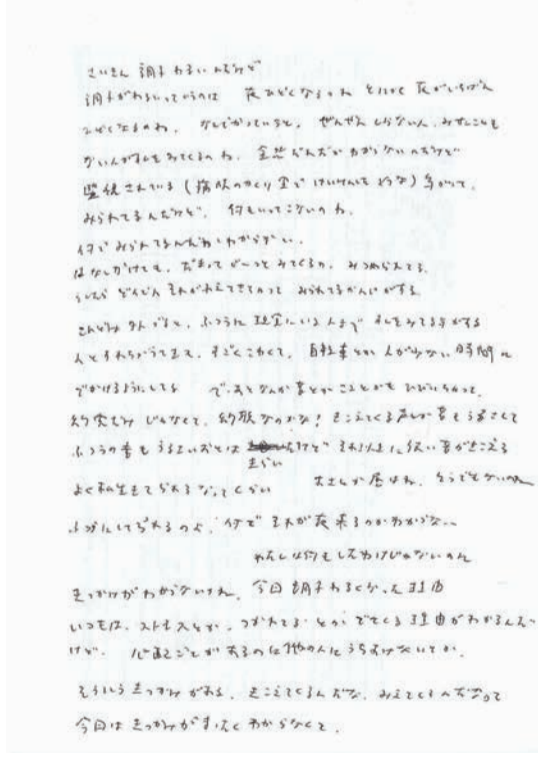 さいきん 調子わるいんだけど
調子がわるいっていうのは 夜ひどくなるのね とにかく 夜がいちばん
ひどくなるのね。なんでかっていうと、ぜんぜん しらない人、みたことも
ない人が私をみてくるのね。全然だれだか わからないのだけど
監視されている（病院のかくり室で けいけんしたような）多がって、
みられてるんだけど、何もいってこないのね。
何で みられてるんだかわからない。
はなしかけても、だまって じーっと みてくるの、みつめられてる。
そしたら どんどん それがふえてきてみって みられてるかんじがする
ふつうに 現実にいる人まで 私をみてる気がする
人とすれちがうてまえ、すごくこわくて、自転車とか人が少ない時間に
でかけるようにしてる で、あとなんか 音とか ことばがも ひびいちゃって、
幻実てみ じゃなくて、幻聴なのかな！きこえてくる声しか音もうるさくて
ふつうの音も うるさいおとは きらい だけど それ以上に 強い音がきこえる
よく私生きてられるなってくらい 大さんか 居はね、そうでもないのね
ふつうにしてられるのよ、何で それが夜来るのかわからない
わたしは何もしたわけじゃないのに
きっかけがわからないのね、今回 調子わるくなった理由
いつもは、ストレスとか、つかれてる とか でてくる 理由がわかるんだ
けど、心配ごとがあるのに他の人にうちあけないでか、
そういうきっかけがある、きこえてくるんだな、みえてくるのだなって
今回は きっかけがまったく わからなくて。